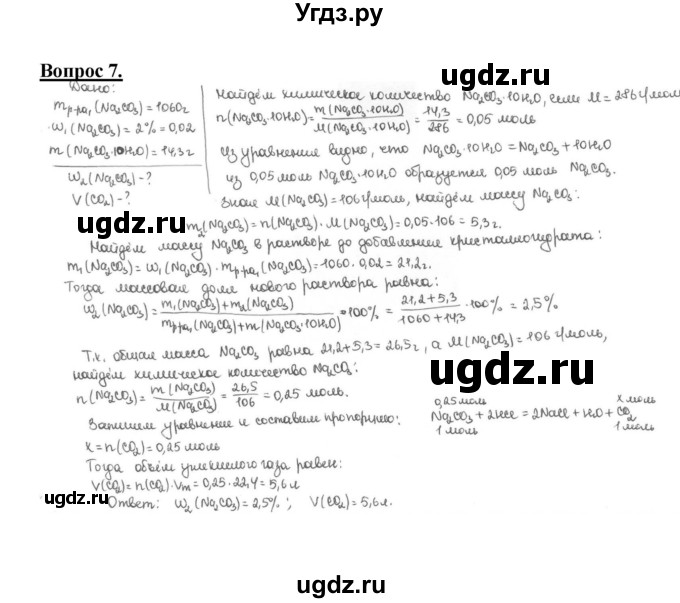 Угдз.ру
Вопрос 7.
Дано:
mр-ра₁(Na₂CO₃)=1060г
w₁(Na₂CO₃)=2%=0,02
m(Na₂CO₃·10H₂O)=14,3г
w₂(Na₂CO₃)-?
V(CO₂)-?
Найдём химическое количество Na₂CO₃·10H₂O, если M=286г/моль
n(Na₂CO₃·10H₂O)=m(Na₂CO₃·10H₂O)/M(Na₂CO₃·10H₂O)=14,3/286=0,05 моль
Из уравнения видно, что Na₂CO₃·10H₂O=Na₂CO₃+10H₂O
из 0,05 моль Na₂CO₃·10H₂O образуется 0,05 моль Na₂CO₃.
Зная M(Na₂CO₃)=106г/моль, найдём массу Na₂CO₃:
угдз.ру
m₂(Na₂CO₃)=n(Na₂CO₃)·M(Na₂CO₃)=0,05·106=5,3г.
ugdz.ru
Найдём массу Na₂CO₃ в растворе до добавления кристаллогидрата:
m₁(Na₂CO₃)=w₁(Na₂CO₃)·mр-ра₁(Na₂CO₃)=1060·0,02=21,2г.
Тогда массовая доля нового раствора равна:
w₂(Na₂CO₃)=m₁(Na₂CO₃)+m₂(Na₂CO₃)/mр-ра₁(Na₂CO₃)+m(Na₂CO₃·10H₂O)·100%=21,2+5,3/1060+14,3·100%=2,5%
Т.к. общая масса Na₂CO₃ равна 21,2+5,3=26,5г, а M(Na₂CO₃)=106г/моль,
найдём химическое количество Na₂CO₃:
n(Na₂CO₃)=m(Na₂CO₃)/M(Na₂CO₃)=26,5/106=0,25 моль.
Запишем уравнение и составим пропорцию:
0,25моль x моль
Na₂CO₃+2HCl=2NaCl+H₂O+CO₂
1 моль 1 моль
x=n(CO₂)=0,25 моль
ugdz.ru
Тогда объём углекислого газа равен:
V(CO₂)=n(CO₂)·Vm=0,25·22,4=5,6л
ugdz.ru
Ответ: w₂(Na₂CO₃)=2,5%; V(CO₂)=5,6л.
ugdz.ru